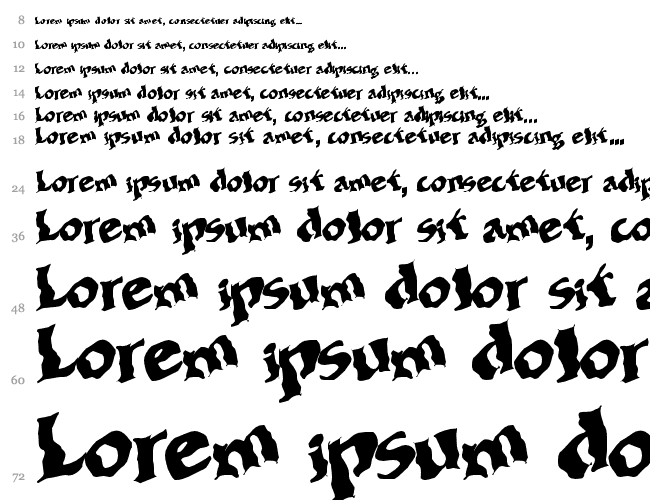 8 Lorem ipsum dolor sit amet, consectetuer adipiscing elit...
10 Lorem ipsum dolor sit amet, consectetuer adipiscing elit...
12 Lorem ipsum dolor sit amet, consectetuer adipiscing elit...
14 Lorem ipsum dolor sit amet, consectetuer adipiscing elit...
16 Lorem ipsum dolor sit amet, consectetuer adipiscing elit...
18 Lorem ipsum dolor sit amet, consectetuer adipiscing elit...
24 Lorem ipsum dolor sit amet, consectetuer adip
36 Lorem ipsum dolor sit amet, co
48 Lorem ipsum dolor sit a
60 Lorem ipsum dolor
72 Lorem ipsum do